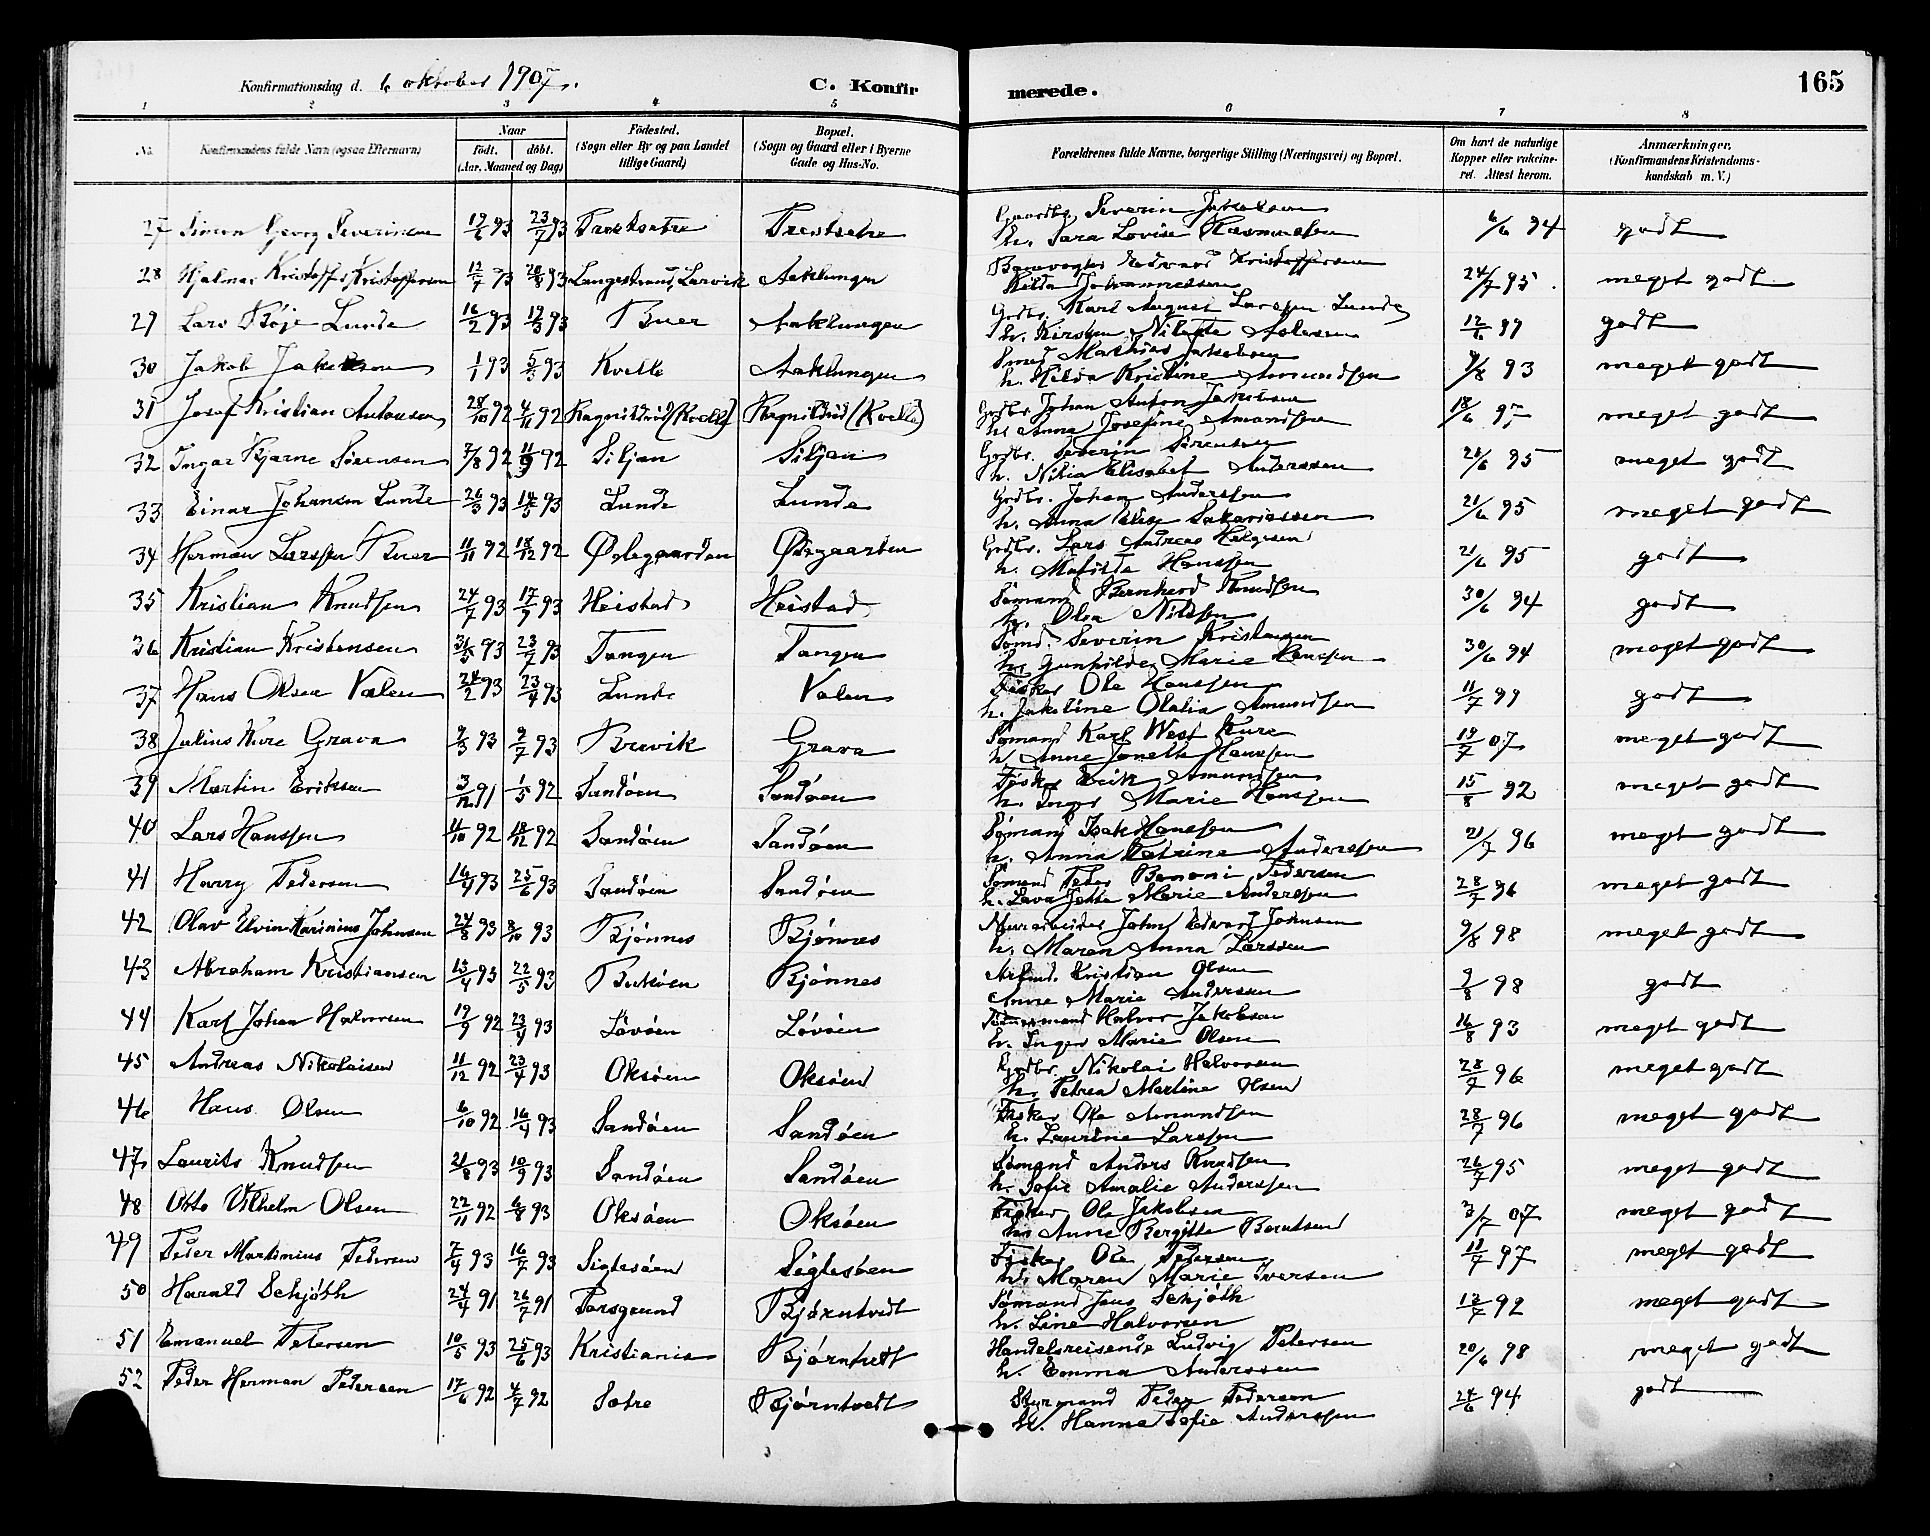 Konfirmationsdag d. 6 oktober 1907. C. Konfirmerede. 165
1 2 3 4 5 6 7 8
No. Konfirmandens fulde Navn (ogsaa Efternavn) Naar født. døbt. (Aar, Maaned og Dag) Fødested. (Sogn eller By og paa Landet tillige Gaard) Bopæl. (Sogn og Gaard eller i Byerne Gade og Hus-No. Forældrenes fulde Navne, borgerlige Stilling (Næringsvei) og Bopæl. Om havt de naturlige Kopper eller vakcineret. Attest herom. Anmærkninger. (Konfirmandens Kristendomskundskab m. V.)
27 Simon Georg Severinsen 19/6 93 23/7 93 Gaardbr. Severin Jakobsen
h. Sara Lovise Rasmussen 6/6 94 godt
28 Hjalmar Kristoffer Kristoffersen 12/7 93 20/8 93 Langestrand, Larvik Aaklungen Banevogter Edvard Kristoffersen
Hilda Johannessen 24/7 95 meget godt
29 Lars Bøje Lunde 16/2 93 19/3 93 Buer Aaklungen Grdbr. Karl August Larssen Lunde
h. Kirsten 12/6 99 godt
30 Jakob Jakobsen 1/1 93 5/3 93 Kvelle Aaklungen Smed Mathias Jakobsen
h. Hilda Kristine Amundsen 9/8 93 meget godt
31 Josef Kristian Antonsen 28/10 92 92 Ragnildrød (Kvelle) Ragnildrød (Kvelle) Grdbr. Johan Anton Jakobsen
h. Anna Josefine Amundsen 18/6 97 meget godt
32 Ingar Bjarne Sørensen 7/8 92 11/9 92 Siljan Siljan Grdbr. Severin Sørensen
h. Elisabet Anderssen 21/6 95 meget godt
33 Einar Johansen Lunde 26/3 93 14/5 93 Lunde Lunde Grdbr. Johan Anderssen
h. Anna Elise Sakariassen 21/6 95 meget godt
34 Herman Larssen Buer 11/11 92 18/12 92 Ødegaarden Ødegaarden Grdbr. Lars Andreas Helgesen
h. Matilde Hanssen 21/6 95 godt
35 Kristian Knudsen 24/7 93 17/9 93 Heistad Heistad Sømand Bernhard Knudsen
h. Olea Nilssen 30/6 94 godt
36 Kristian Kristensen 31/5 93 23/7 93 Tangen Tangen Sømd. Severin Kristensen
h. Gunhilde Marie Hanssen 30/6 94 meget godt
37 Hans Olsen Valen 24/2 93 23/4 93 Lunde Valen Fisker Ole Hanssen
h. Jakobine Olalia Amundsen 11/7 99 godt
38 Julius Kure Grava 9/3 93 9/7 93 Brevik Grava Sømand Karl West Kure
h. Anne Jonette Hanssen 19/7 07 meget godt
39 Martin Eriksen 3/12 91 1/5 92 Sandøen Sandøen Fisker Erik Amundsen
h. Inger Marie Hanssen 15/8 92 meget godt
40 Lars Hanssen 11/10 92 18/12 92 Sandøen Sandøen Sømand Isak Hanssen
h. Anna Katrine Anderssen 21/7 96 meget godt
41 Harry Pedersen 16/4 93 25/6 93 Sandøen Sandøen Sømand Peder Benoni Pedersen
h. Marie Anderssen 28/7 96 meget godt
42 Olav Elvin Karinius Johnsen 24/8 93 8/10 93 Bjønnes Bjønnes Murarbeider John Edvart Johnsen
h. Maren Anna Larssen 9/8 98 meget godt
43 Abraham Kristiansen 13/4 93 22/5 93 Bukøen Bjønnes Arbmd. Kristian Olsen
Anne Marie Anderssen 9/8 98 godt
44 Karl Johan Halvorsen 19/9 92 23/4 93 Løvøen Løvøen Halvor Jakobsen
h. Inger Marie Olsen 16/8 93 meget godt
45 Andreas Nikolaisen 11/12 92 23/4 93 Oksøen Oksøen Grdbr. Nikolai Halvorsen
h. Petrea Martine Olsen 28/7 96 meget godt
46 Hans Olsen 6/10 92 16/4 93 Sandøen Sandøen Fisker Ole Amundsen
h. Laurine Larssen 28/7 96 meget godt
47 Laurits Knudsen 21/8 93 10/9 93 Sandøen Sandøen Sømand Anders Knudsen
h. Sofie Amalie Anderssen 26/7 95 meget godt
48 Otto Vilhelm Olsen 22/11 92 6/8 93 Oksøen Oksøen Fisker Ole Jakobsen
h. Anne Bergitte Berntsen 3/7 07 meget godt
49 Peder Martinius Pedersen 7/4 93 16/7 93 Siglesøen Siglesøen Fisker Ole Pedersen
h. Maren Marie Iversen 11/7 97 meget godt
50 Harald Schjøth 24/4 91 26/7 91 Porsgrund Bjørntvedt Sømand Jens Schjøth
h. Line Halvorsen 12/7 92 meget godt
51 Emanuel Petersen 10/5 93 25/6 93 Kristiania Bjørntvedt Handelsreisende Ludvig Petersen
h. Emma Anderssen 20/6 98 meget godt
52 Peder Herman Pedersen 17/6 92 92 Sætre Bjørntvedt Styrmand Peder Pedersen
h. Hanna Sofie Anderssen 24/6 94 godt